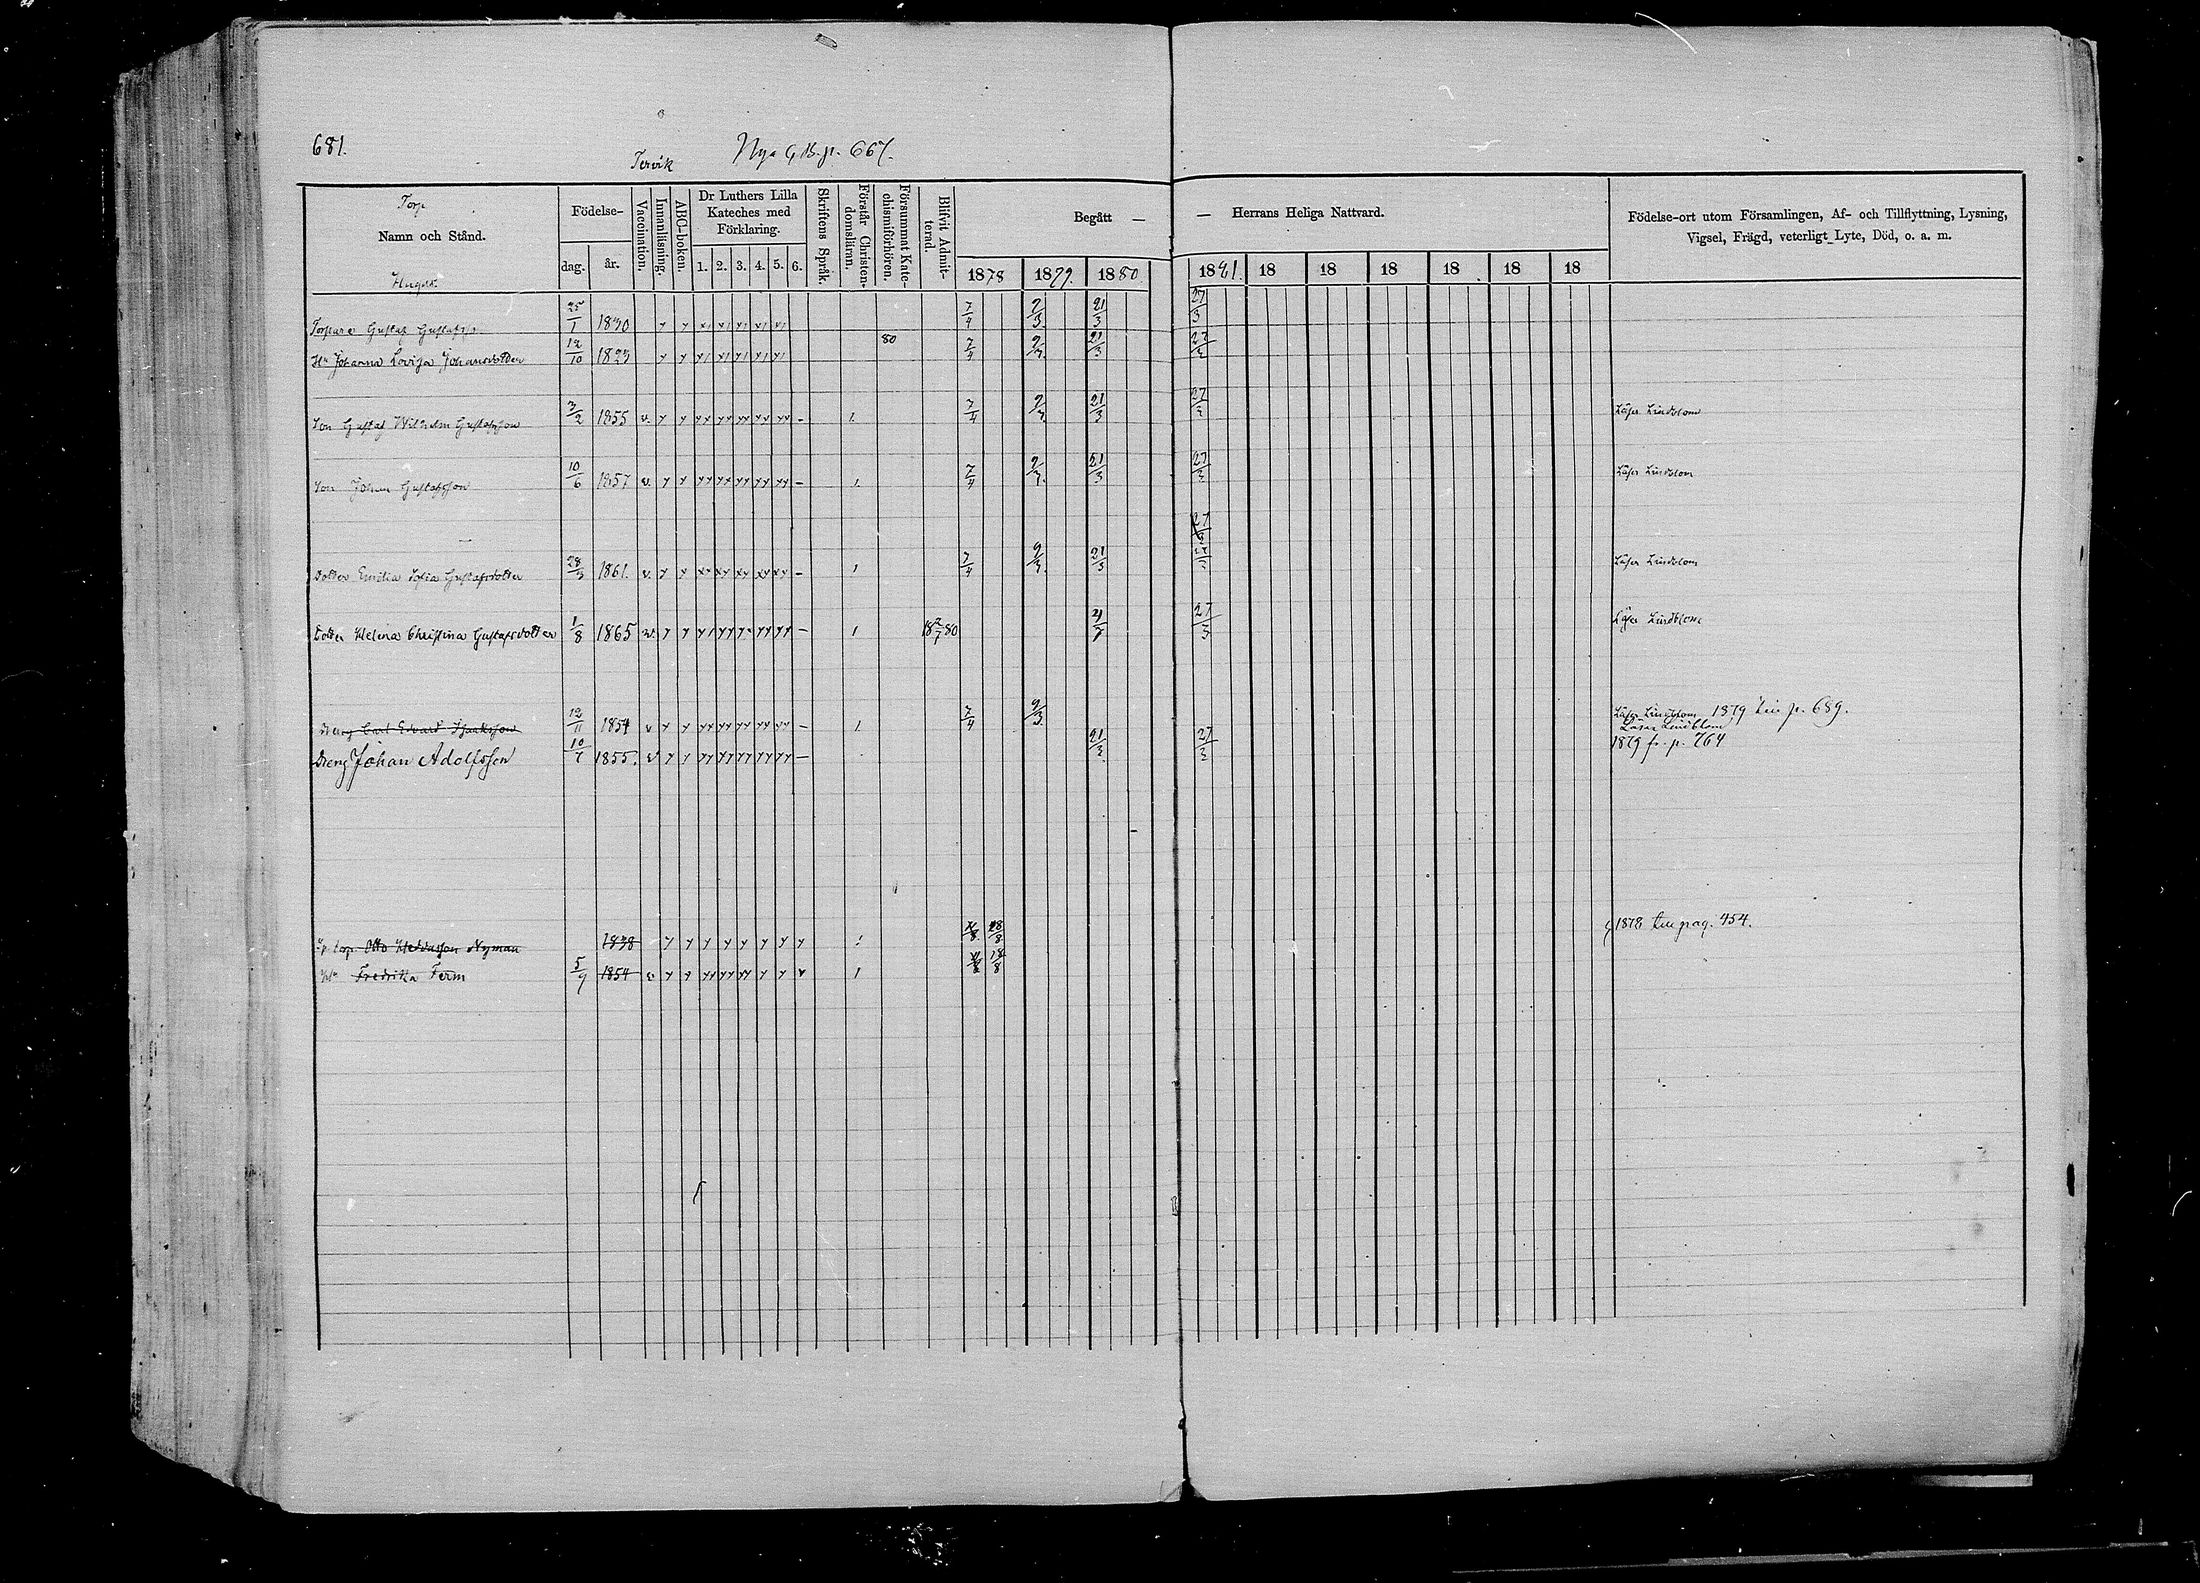 681.
Tervik Nya C, B. p. 667.
Torp
Namn och Stånd.
Födelse-
dag. år.
Vaccination.
Innanläsning.
ABC-boken.
Dr Luthers Lilla
Kateches med
Förklaring.
1. 2. 3. 4. 5. 6.
Skriftens Språk.
Förstår Christen-
domsläran.
Försummat Kate-
chismiförhören.
Blifvit Admit-
terad.
Begått — — Herrans Heliga Nattvard.
1878 1879. 1880 1881. 18 18 18 18 18 18
Födelse-ort utom Församlingen, Af- och Tillflyttning, Lysning,
Vigsel, Frägd, veterligt Lyte, Död, o. a. m.
Torpare Gustaf Gustafss. 25/1 1830 7/4 9/3 21/3 27/3
Hu Johanna Lovisa Johansdotter 12/10 80 7/4 9/3 21/3 27/3
Son Gustaf Wilhelm Gustafsson 3/2 1855 v. 1. 7/4 9/3. 21/3 27/3 Läser Lindblom
Son Johan Gustafsson 10/6 1857 v. 1. 7/4 9/3. 21/3 27/3 Läser Lindblom
Dotter Emilia Sofia Gustafsdotter 28/3 1861. v. 1 7/4 9/3. 21/3 27/3 Läser Lindblom
Dotter Helena Christina Gustafsdotter 1/8 1865 v. 1 18 2/7 80 4/7 27/3 Läser Lindblom
Dreng Carl Edvard Isaksson 12/11 1854 v 1. 7/4 9/3. Läser Lindblom 1879 till p. 689.
Läser Lindblom
Dreng Johan Adolfsson 10/7 1855. v 21/3. 27/3 1879 fr. p. 764
Otto Nyman 1838 28/8 1878 till pag. 454.
Hu Fredrika Ferm 5/9 1854 v. 1 18/8